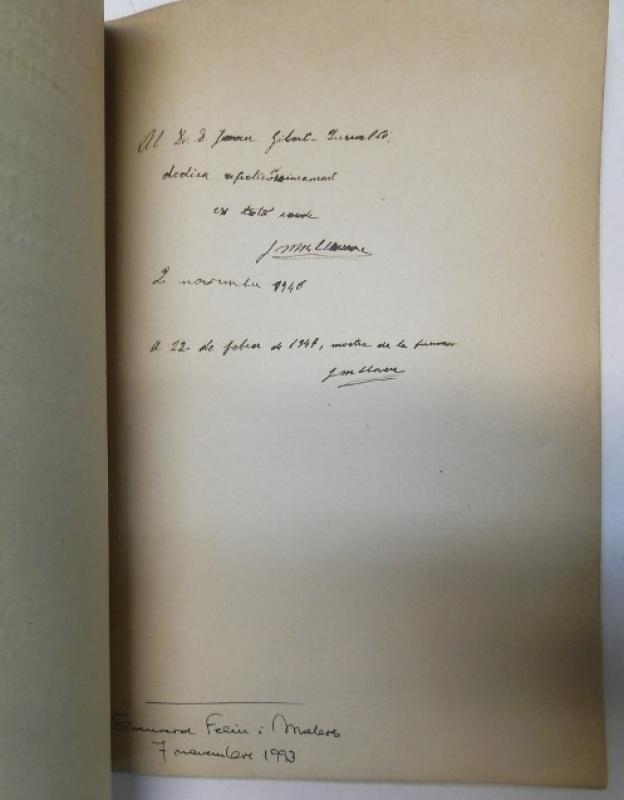 Al Dr. D. Joan Gibert-Queraltó,
dedica afectuosissimament
2 novembre 1946
A 22 de febrer de 1947, mostra de la
J M Llovera
Eduard Feliu i Mabres
7 novembre 1993